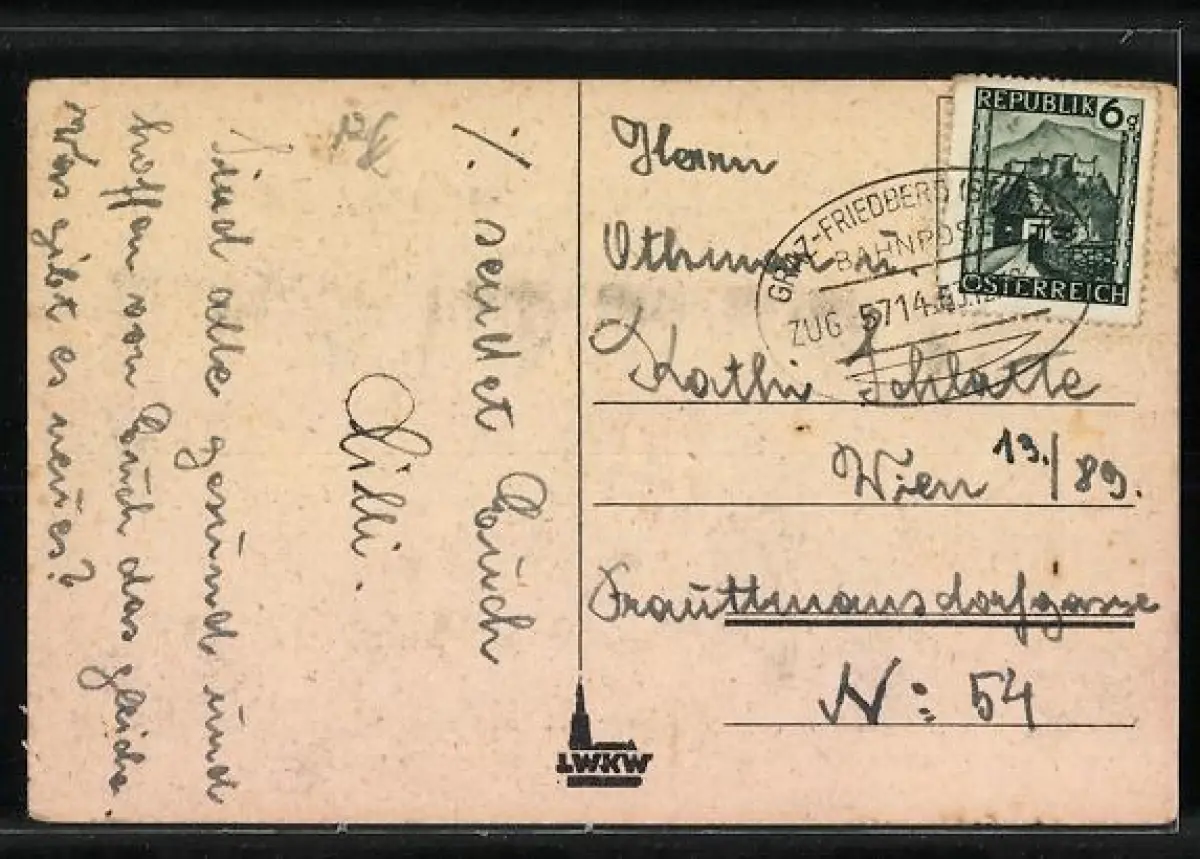 ·/. sendet Euch
Lilli.
Sind alle gesund und
hoffen von Euch das gleiche.
Was gibt es neues?
REPUBLIK 6g
ÖSTERREICH
GRAZ-FRIEDBERG
BAHNPOST
ZUG 5714
Herrn
Othmar u.
Kathi Schlatte
Wien 13./89.
Trauttmansdorfgasse
N: 54
LWKW